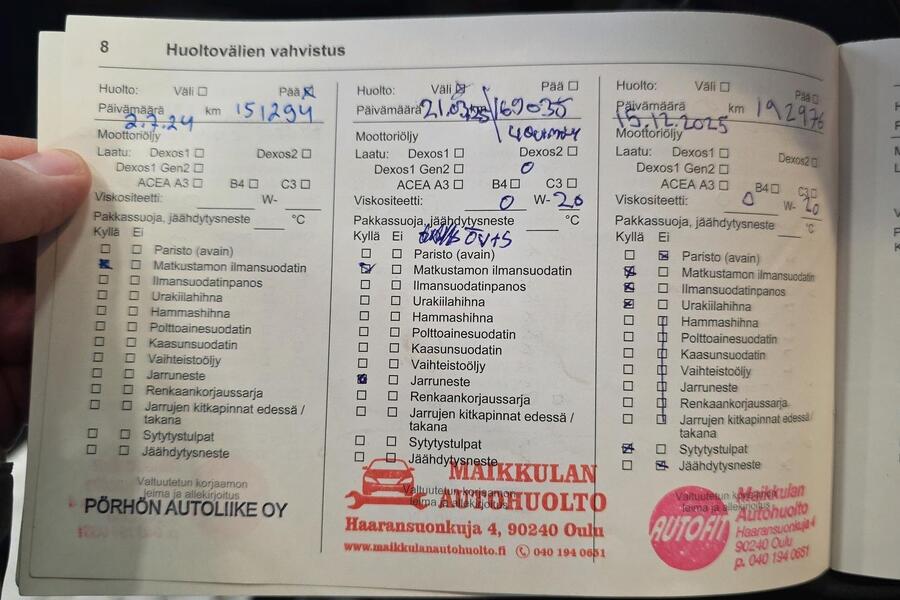 8 Huoltovälien vahvistus
Huolto: Väli Pää
Päivämäärä km 151294
2.7.24
Moottoriöljy
Laatu: Dexos1 Dexos2
Dexos1 Gen2
ACEA A3 B4 C3
Viskositeetti: W-
Pakkassuoja, jäähdytysneste °C
Kyllä Ei
Paristo (avain)
Matkustamon ilmansuodatin
Ilmansuodatinpanos
Urakiilahihna
Hammashihna
Polttoainesuodatin
Kaasunsuodatin
Vaihteistoöljy
Jarruneste
Renkaankorjaussarja
Jarrujen kitkapinnat edessä /
takana
Sytytystulpat
Jäähdytysneste
Valtuutetun korjaamon
leima ja allekirjoitus
PÖRHÖN AUTOLIIKE OY
Huolto: Väli Pää
Päivämäärä 169035
Moottoriöljy
Laatu: Dexos1 Dexos2
Dexos1 Gen2
ACEA A3 B4 C3
Viskositeetti: 0 W-20
Pakkassuoja, jäähdytysneste °C
Kyllä Ei
Paristo (avain)
Matkustamon ilmansuodatin
Ilmansuodatinpanos
Urakiilahihna
Hammashihna
Polttoainesuodatin
Kaasunsuodatin
Vaihteistoöljy
Jarruneste
Renkaankorjaussarja
Jarrujen kitkapinnat edessä /
takana
Sytytystulpat
Jäähdytysneste
Valtuutetun korjaamon
leima ja allekirjoitus
MAIKKULAN
AUTOHUOLTO
Haaransuonkuja 4, 90240 Oulu
www.maikkulanautohuolto.fi 040 194 0651
Huolto: Väli Pää
Päivämäärä km 192976
15.12.2025
Moottoriöljy
Laatu: Dexos1 Dexos2
Dexos1 Gen2
ACEA A3 B4 C3
Viskositeetti: 0 W-20
Pakkassuoja, jäähdytysneste °C
Kyllä Ei
Paristo (avain)
Matkustamon ilmansuodatin
Ilmansuodatinpanos
Urakiilahihna
Hammashihna
Polttoainesuodatin
Kaasunsuodatin
Vaihteistoöljy
Jarruneste
Renkaankorjaussarja
Jarrujen kitkapinnat edessä /
takana
Sytytystulpat
Jäähdytysneste
Valtuutetun korjaamon
leima ja allekirjoitus
AUTOFIT
Maikkulan
Autohuolto
Haaransuonkuja 4
90240 Oulu
p. 040 194 0651